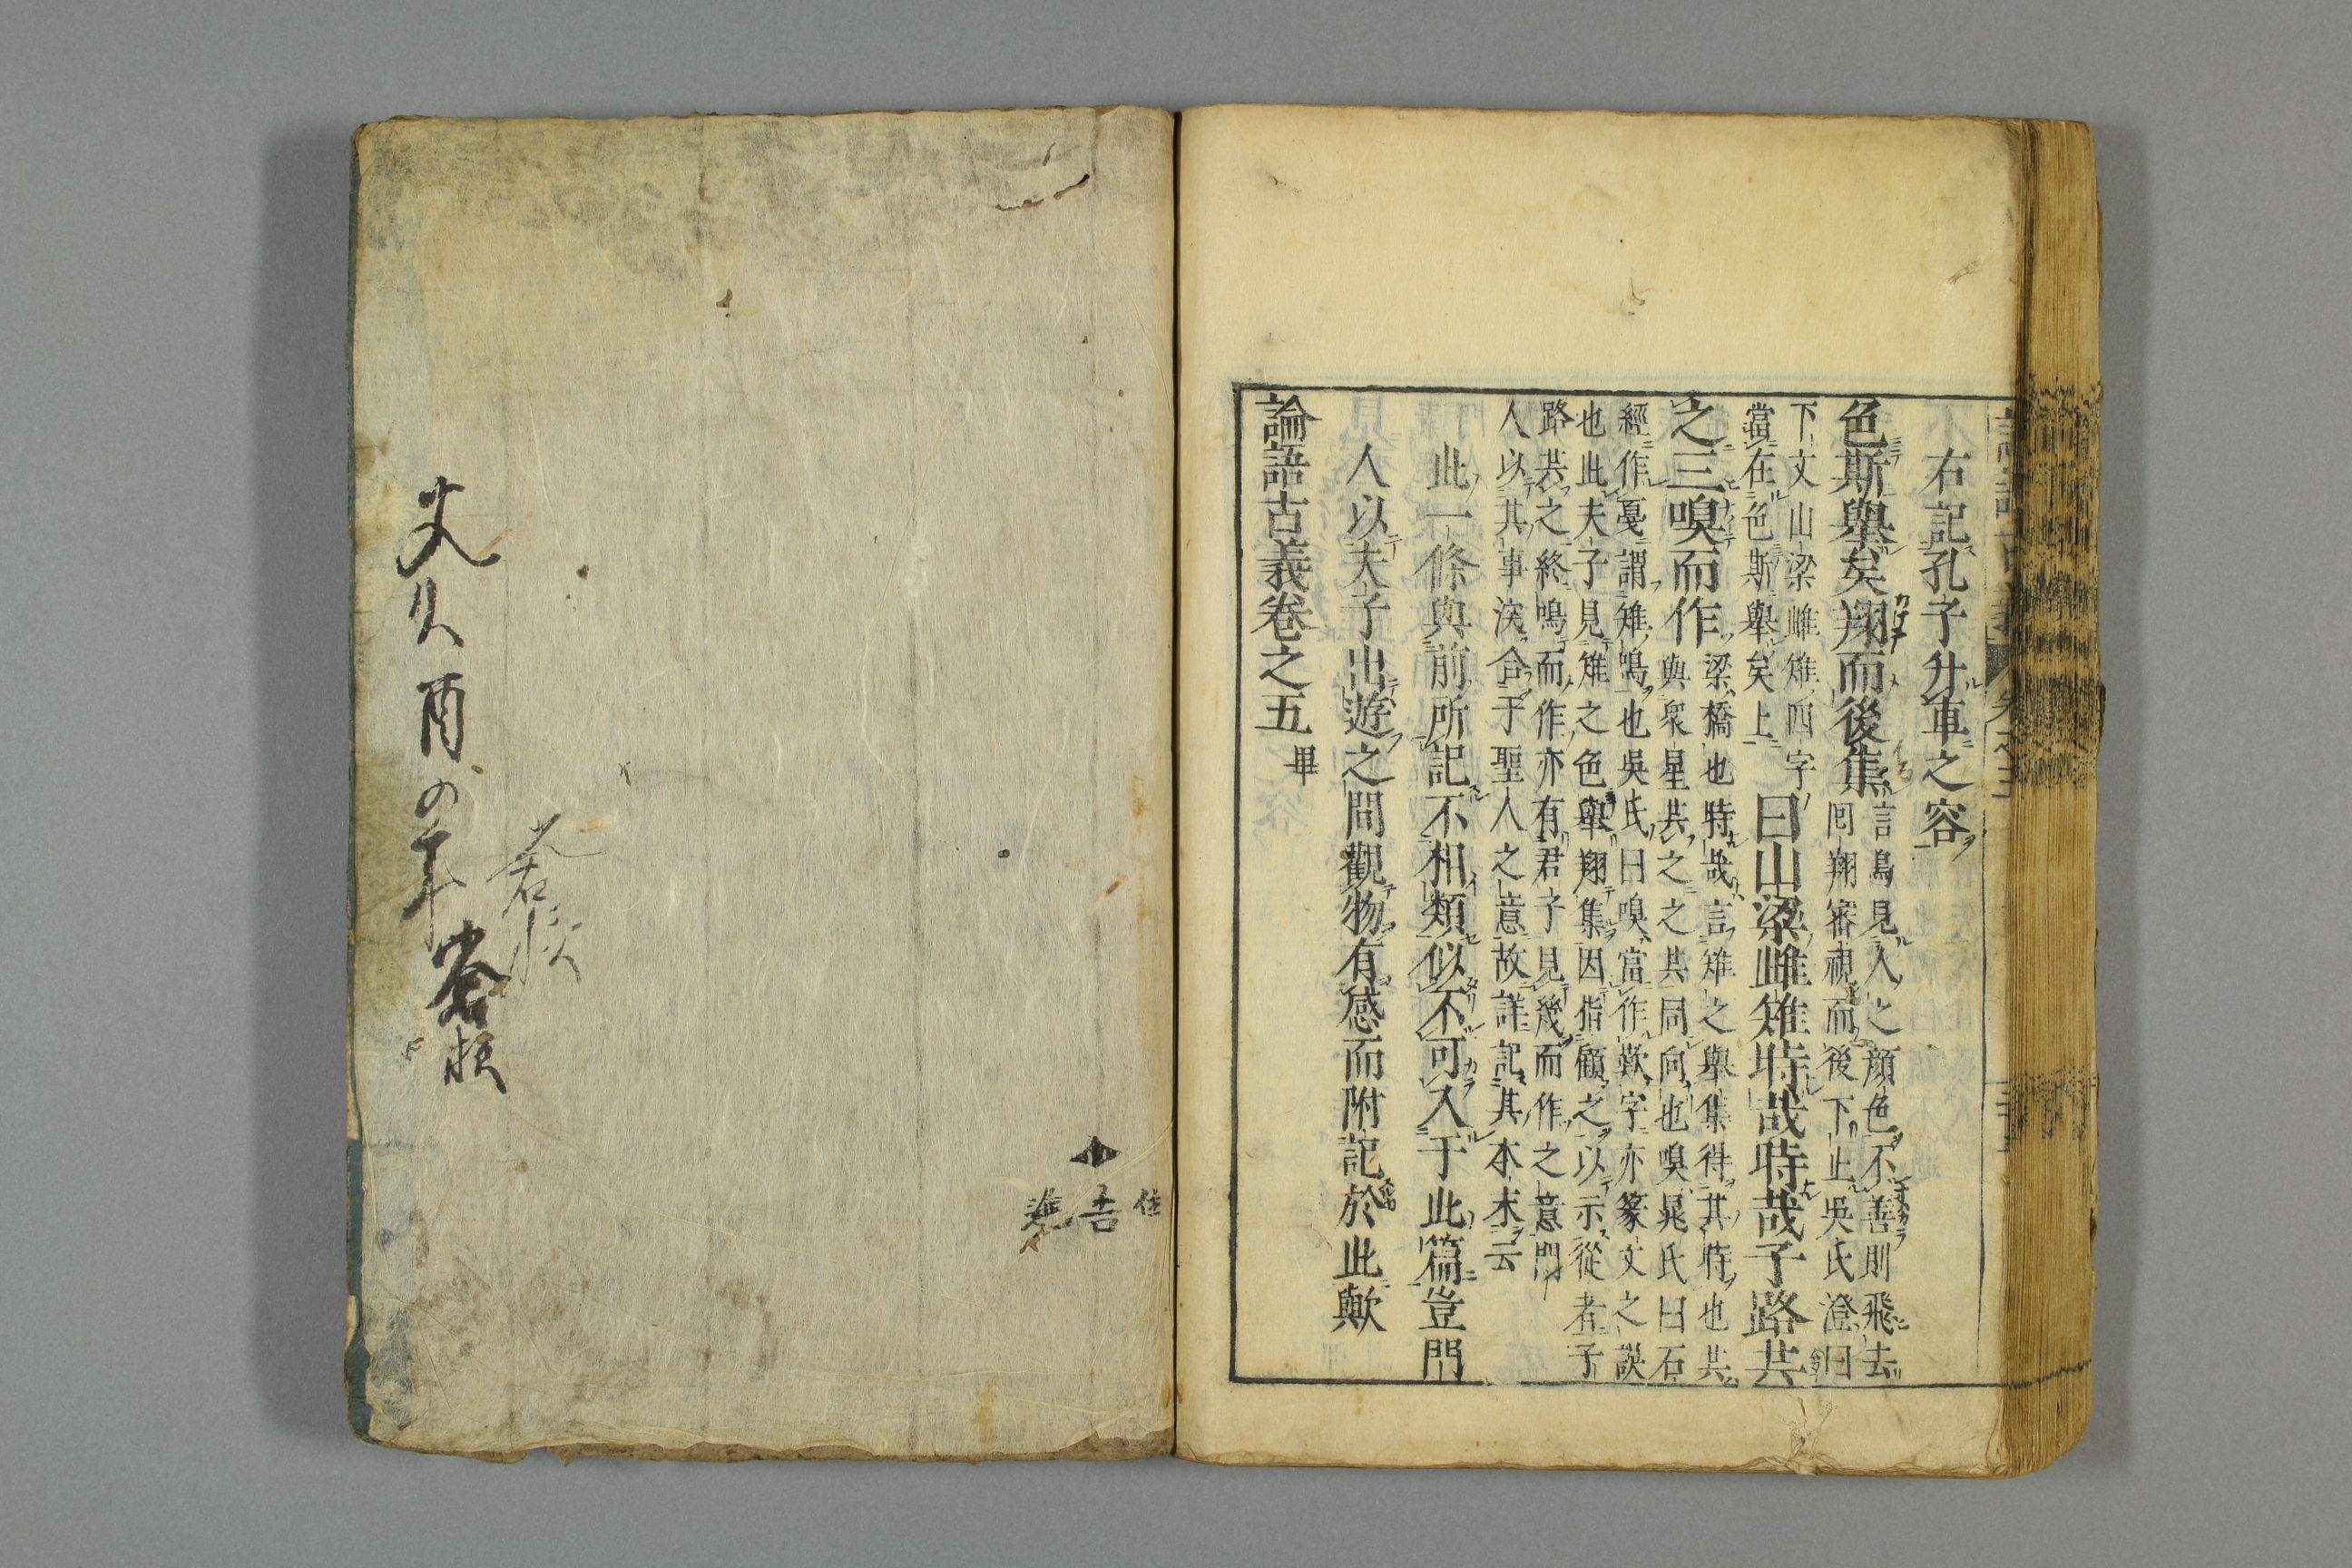 右記孔子升車之容
色斯舉矣翔而後集 言鳥見人之顔色不善則飛去
回翔審視而後下止吳氏澄曰
下文山梁雌雉四字
當在色斯舉矣上 曰山梁雌雉時哉時哉子路共
之三嗅而作 梁橋也時哉言雉之舉集得其時也共
與衆星共之之共同向也嗅晁氏曰石
經作戞謂雉鳴也吳氏曰嗅當作歎字亦篆文之誤
也此夫子見雉之色舉翔集因指顧之以示從者子
路共之終鳴而作亦有君子見幾而作之意門
人以其事深合于聖人之意故詳記其本末云
此一條與前所記不相類似不可入于此篇豈門
人以夫子出遊之間觀物有感而附記於此歟
論語古義卷之五 畢
住
吉
文久酉の年